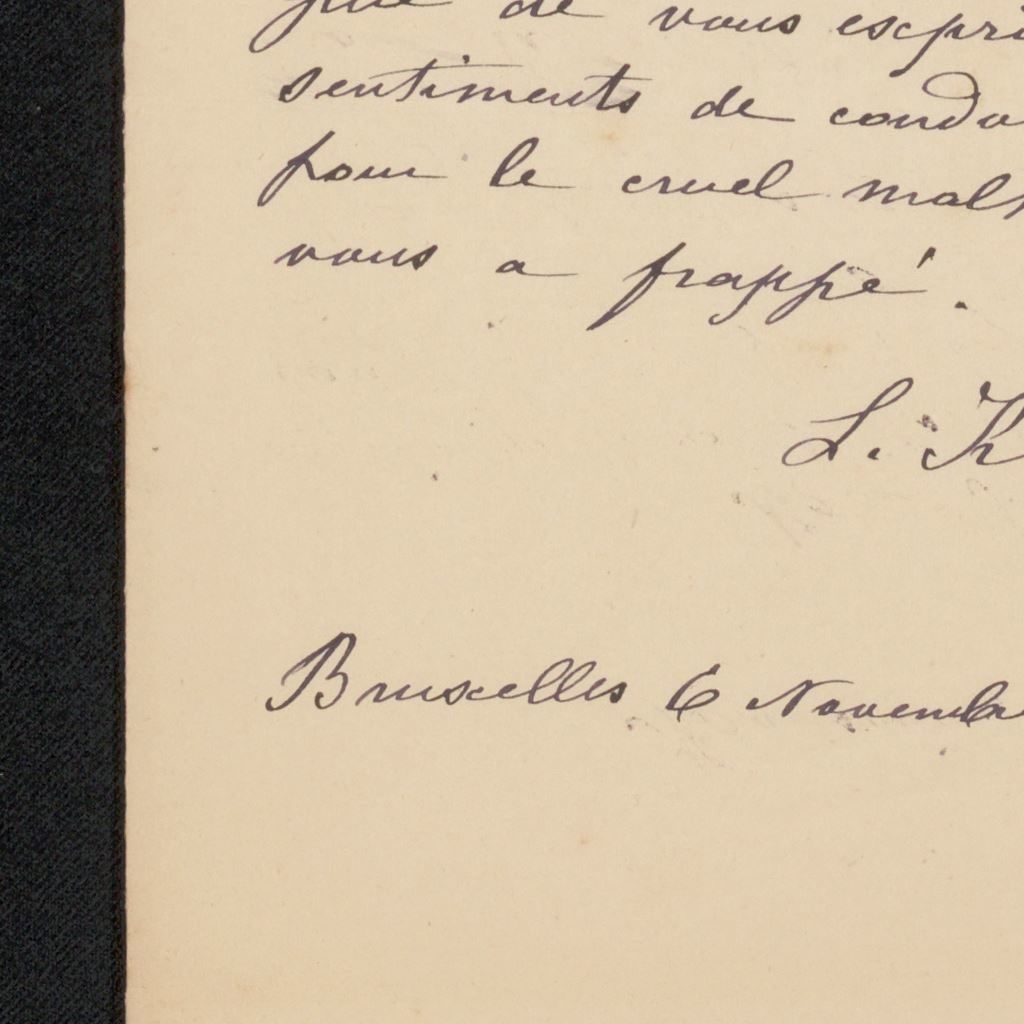 que de vous expri
sentiments de condo
pour le cruel malh
vous a frappé.
L. K
Bruxelles 6 Novembr